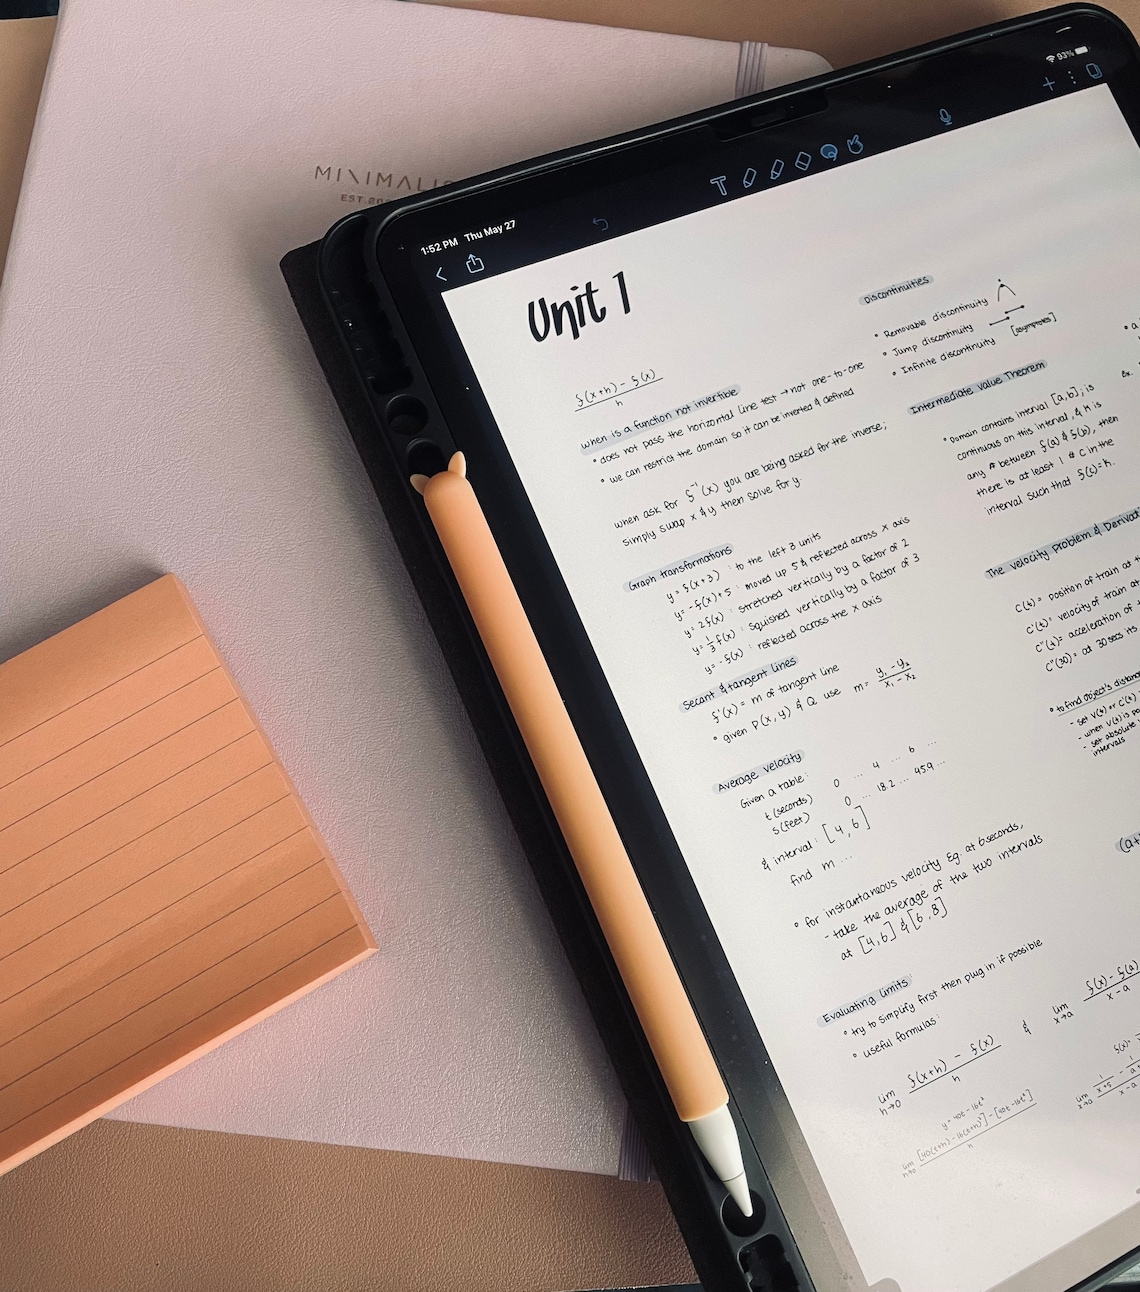 MINIMALIS
93%
1:52 PM Thu May 27
Unit 1
f(x+h) - f(x)
h
when is a function not invertible
• does not pass the horizontal line test → not one-to-one
• we can restrict the domain so it can be inverted & defined
when ask for f⁻¹(x) you are being asked for the inverse;
simply swap x & y then solve for y.
Graph transformations
y = f(x+3) : to the left 3 units
y = -f(x)+5 : moved up 5 & reflected across x axis
y = 2f(x) : stretched vertically by a factor of 2
y = 1/3 f(x) : squished vertically by a factor of 3
y = -f(x) : reflected across the x axis
Secant & tangent lines
f'(x) = m of tangent line
• given P(x, y) & Q use m = y₁ - y₂ / x₁ - x₂
Average velocity
Given a table:
t (seconds) 0 ... 4 ... 6 ...
s (feet) 0 ... 18.2 ... 45.9 ...
& interval : [4, 6]
find m ...
• for instantaneous velocity Eg. at 6 seconds,
- take the average of the two intervals
at [4,6] & [6,8]
Evaluating Limits
• try to simplify first then plug in if possible
• useful formulas:
lim h→0 f(x+h) - f(x) / h & lim x→a f(x) - f(a) / x - a
y = 40t - 16t²
lim h→0 [40(t+h) - 16(t+h)²] - [40t - 16t²] / h
Discontinuities
• Removable discontinuity
• Jump discontinuity
• Infinite discontinuity [asymptotes]
Intermediate Value Theorem
• Domain contains interval [a,b]; is
continuous on this interval, & N is
any # between f(a) & f(b), then
there is at least 1 # c in the
interval such that f(c)=n.
The velocity Problem & Derivat
C(t) = position of train at t
C'(t) = velocity of train at
C"(t) = acceleration of
C"(30) = at 30 secs its
• to find object's distanc
- set V(t) or C'(t)
- when V(t) is po
- set absolute
intervals
Ex.
(a+